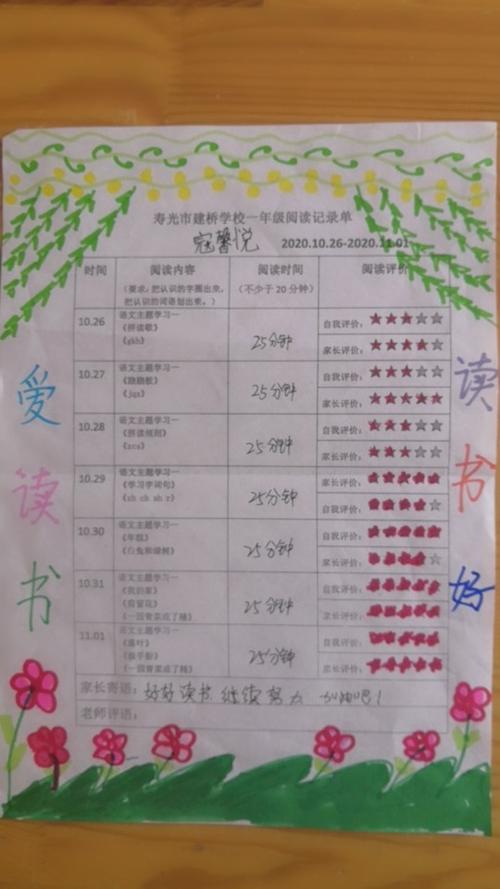 寿光市建桥学校一年级阅读记录单
寇馨悦 2020.10.26-2020.11.01
时间 阅读内容 阅读时间 阅读评价
(要求:把认识的字圈出来, (不少于20分钟)
把认识的词语划出来。)
10.26 语文主题学习一 自我评价:★★★☆☆
《拼读歌》 25分钟
《gkh》 家长评价:★★★★☆
10.27 语文主题学习一 自我评价:★★★☆☆
25分钟
《jqx》 家长评价:★★★★★
10.28 语文主题学习一 自我评价:★★★☆☆
《拼读规则》 25分钟
《zcs》 家长评价:★★★☆☆
10.29 语文主题学习一 自我评价:★★★★★
《学习字词句》 25分钟
《zh ch sh r》 家长评价:★★★★☆
10.30 语文主题学习一 自我评价:★★★★★
《年级》 25分钟
家长评价:★★★★☆
10.31 语文主题学习一 自我评价:★★★★★
《我的家》
《剪窗花》 25分钟
《一园青菜成了精》 家长评价:★★★★★
11.01 语文主题学习一 自我评价:★★★★★
《落叶》
25分钟
《一园青菜成了精》 家长评价:★★★★★
家长寄语:好好读书 继续努力 加油吧!
老师评语:
爱读书
读书好